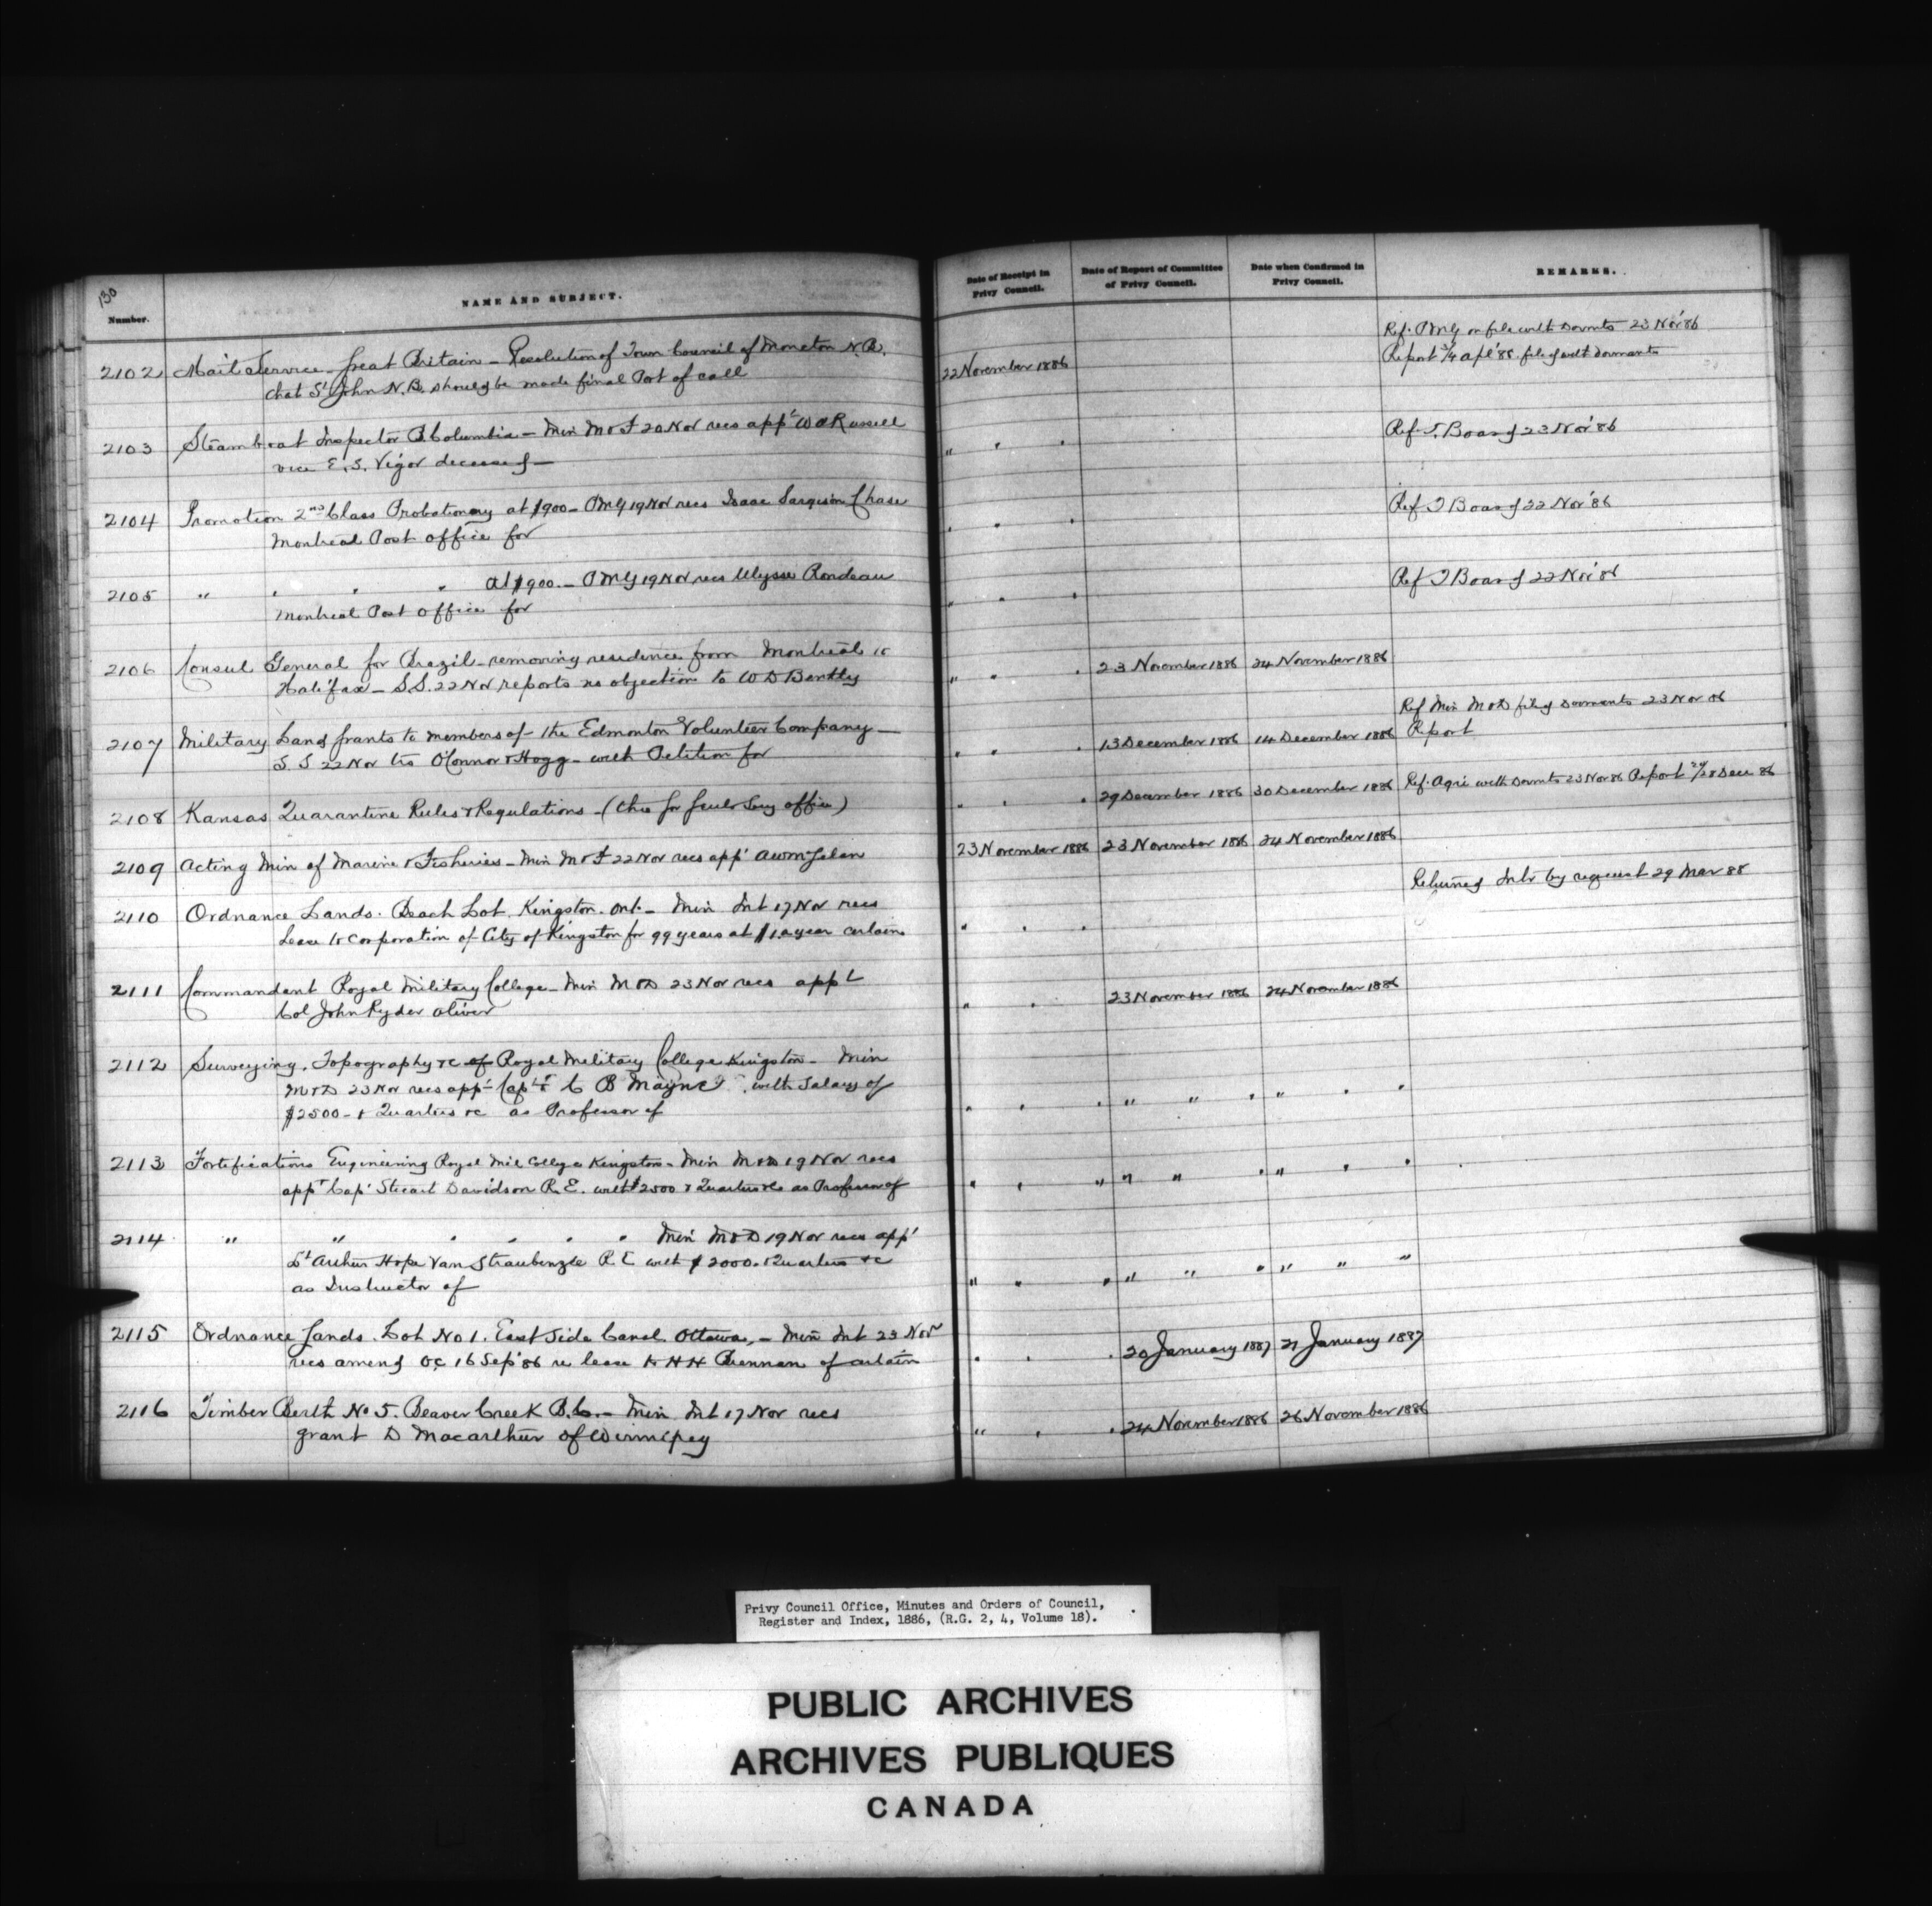 130
Number.
NAME AND SUBJECT.
Date of Receipt in Privy Council.
Date of Report of Committee of Privy Council.
Date when Confirmed in Privy Council.
REMARKS.
2102 Mail Service - Great Britain - Resolution of Town Council of Moncton N.B.
that St John N.B. should be made final Port of call
22 November 1886
Ref. PMG on file with Dormts 23 Nov '86
Report 3/4 Apl '88 filed with dormants
2103 Steamboat Inspector B. Columbia - Min M & F 20 Nov recs appt W A Russell
vice E. S. Vigor deceased -
" " "
Ref. T. Board 23 Nov '86
2104 Promotion 2nd Class Probationary at $900 - PMG 19 Nov recs Isaac Sargison Chase
Montreal Post office for
" " "
Ref T Board 22 Nov '86
2105 " " " " at $900. - PMG 19 Nov recs Ulysse Rondeau
Montreal Post Office for
" " "
Ref T Board 22 Nov '86
2106 Consul General for Brazil - removing residence from Montreal to
Halifax - S.S. 22 Nov reports no objection to W D Bently
" " " 23 November 1886 24 November 1886
2107 Military Land Grants to members of the Edmonton Volunteer Company -
S. S 22 Nov O'Connor & Hogg - with Petition for
" " " 13 December 1886 14 December 1886
Ref Min M & D filed Dormants 23 Nov 86
Report
2108 Kansas Quarantine Rules & Regulations - (thro Gov Genls Secy office)
" " " 29 December 1886 30 December 1886
Ref. Agri with Dormts 23 Nov 86 Report 24/28 Dec 86
2109 Acting Min of Marine & Fisheries - Min M & F 22 Nov recs appt A W McLelan
23 November 1886 23 November 1886 24 November 1886
2110 Ordnance Lands. Beach Lot. Kingston. Ont. - Min Int 17 Nov recs
Lease to Corporation of City of Kingston for 99 years at $1. a year certain
" " "
Returned Intr by request 29 Mar 88
2111 Commandant Royal Military College - Min M & D 23 Nov recs appt
Col John Ryder Oliver
" " 23 November 1886 24 November 1886
2112 Surveying, Topography &c of Royal Military College Kingston - Min
M & D 23 Nov recs appt Capt C B Mayne with Salary of
$2500 - & Quarters &c as Professor of
" " " " " " " " "
2113 Fortifications Engineering Royal Mil College Kingston - Min M & D 19 Nov recs
appt Capt Stuart Davidson R. E. with $2500 & Quarters &c as Professor of
" " " " " " " "
2114 " " " " " " Min M & D 19 Nov recs appt
Lt Arthur Hope Van Straubenzee R E with $2000. & Quarters &c
as Instructor of
" " " " " " " " "
2115 Ordnance Lands. Lot No 1. East Side Canal Ottawa, - Min Int 23 Nov
recs amend O.C 16 Sep '86 re lease to H H Brennan of certain
" " " 20 January 1887 21 January 1887
2116 Timber Berth No 5. Beaver Creek B.C. - Min Int 17 Nov recs
grant D Macarthur of Winnipeg
" " " 24 November 1886 26 November 1886
Privy Council Office, Minutes and Orders of Council,
Register and Index, 1886, (R.G. 2, 4, Volume 18).
PUBLIC ARCHIVES
ARCHIVES PUBLIQUES
CANADA